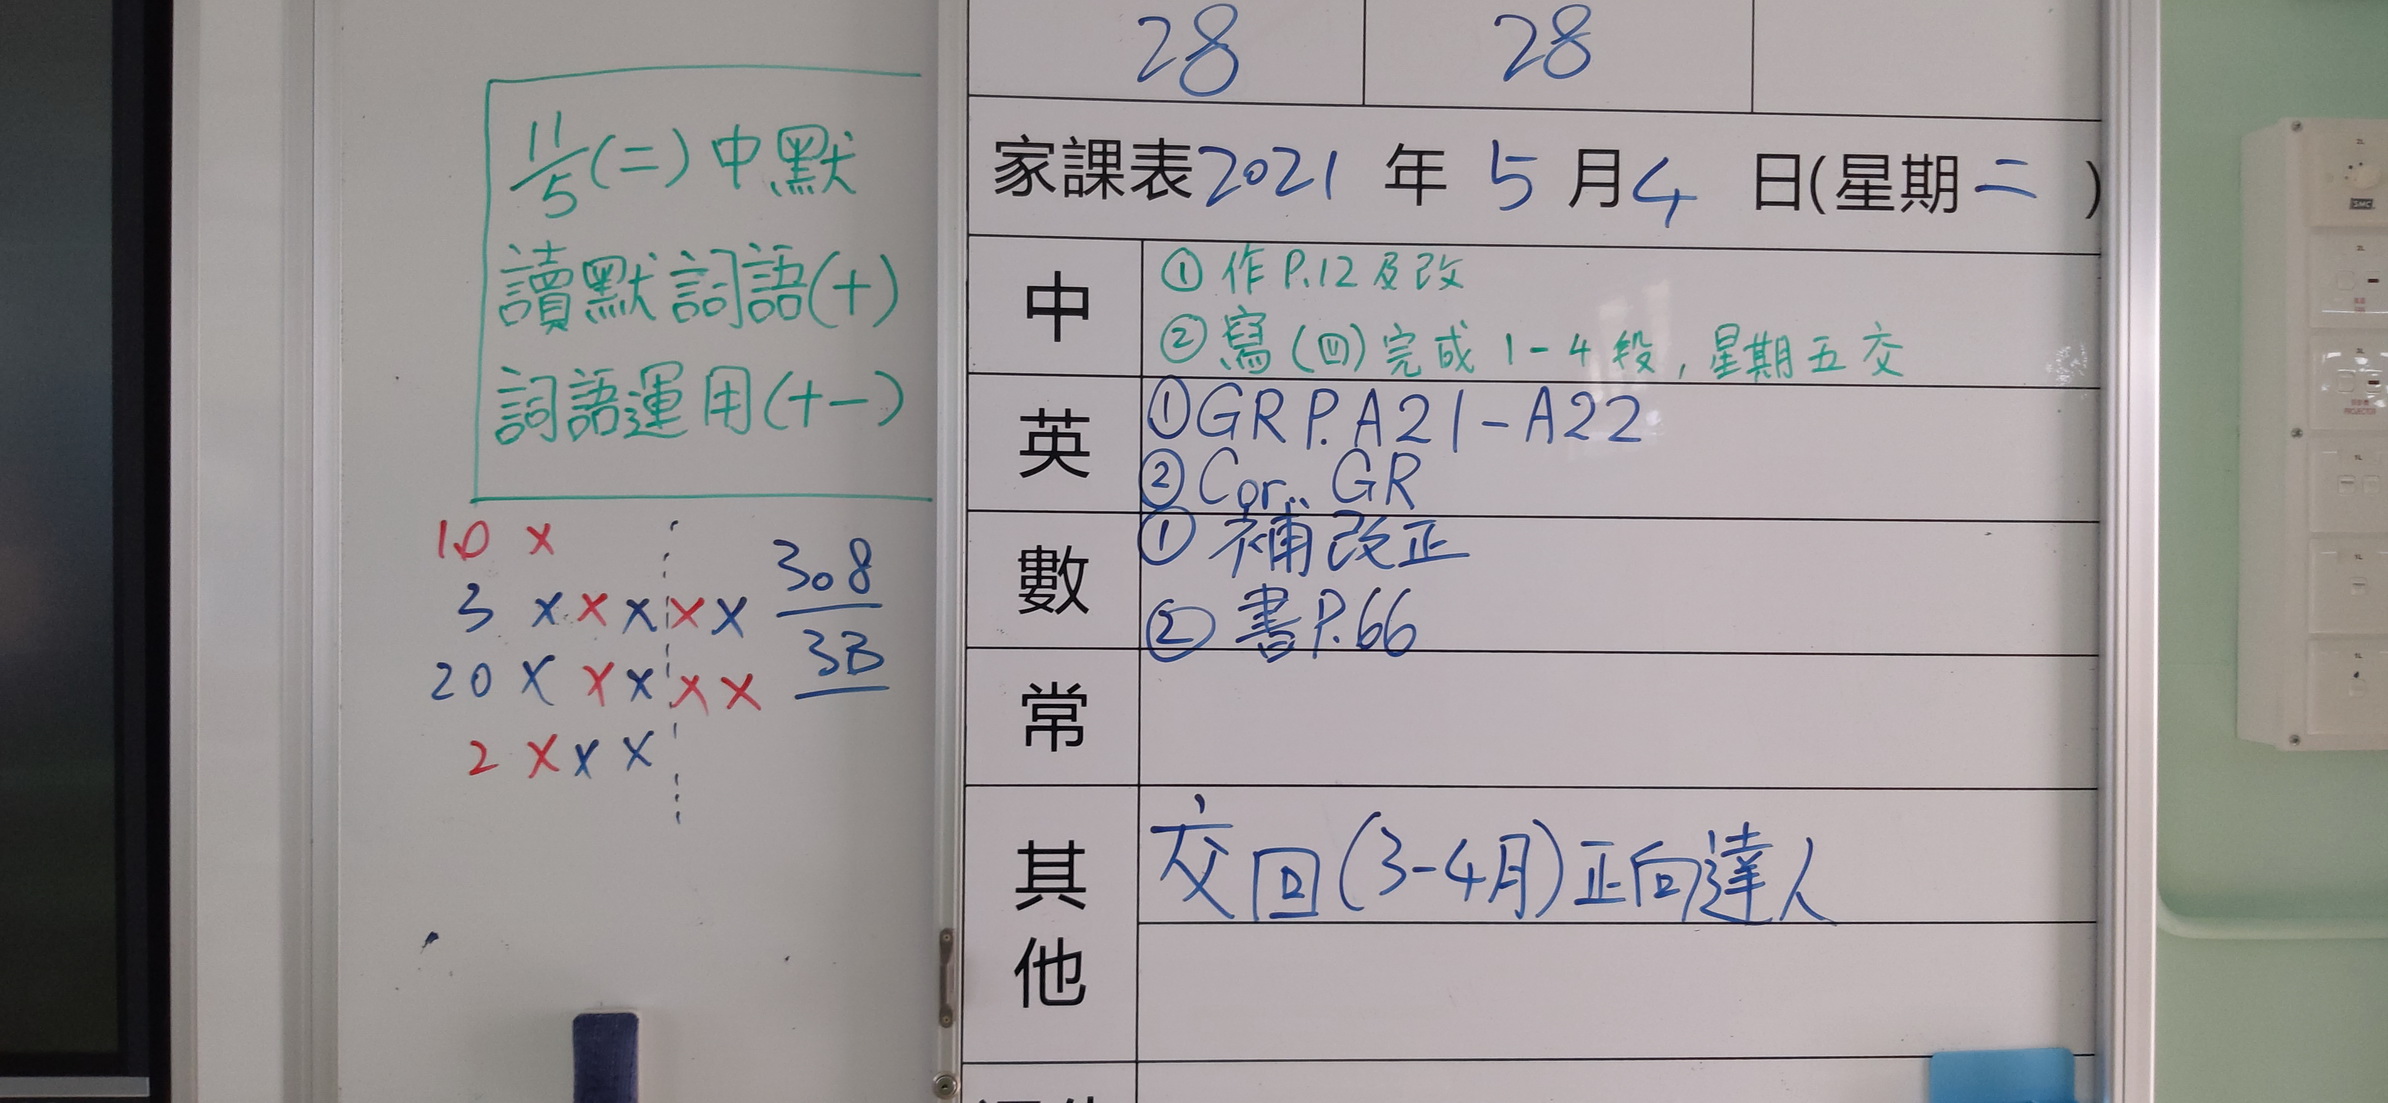 28 28
家課表2021年5月4日(星期二)
中
①作P.12及改
②寫(四)完成1-4段,星期五交
英
①GR P.A21-A22
②Cor. GR
數
①補改正
②書P.66
常
其他
交回(3-4月)正向達人
11/5(二)中默
讀默詞語(十)
詞語運用(十一)
10 x
3 x x x x x
20 x x x x x
2 x x x
308
3B